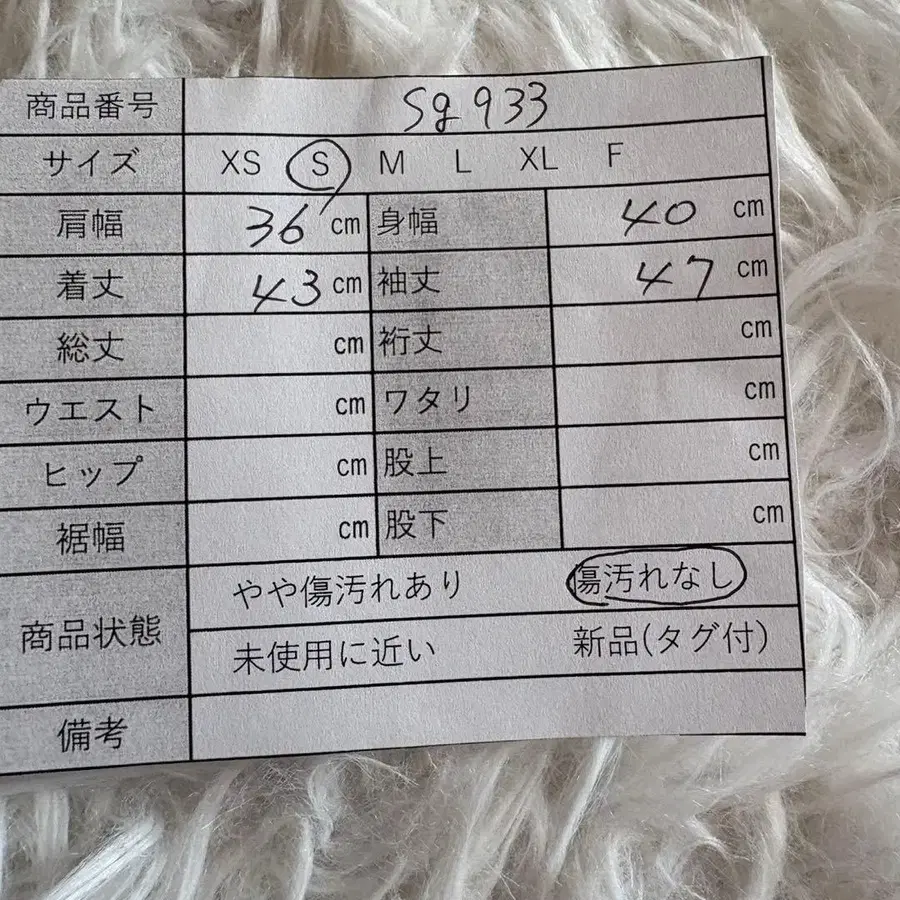 商品番号 Sg933
サイズ XS S M L XL F
肩幅 36 cm 身幅 40 cm
着丈 43 cm 袖丈 47 cm
総丈 cm 裄丈 cm
ウエスト cm ワタリ cm
ヒップ cm 股上 cm
裾幅 cm 股下 cm
商品状態 やや傷汚れあり 傷汚れなし
未使用に近い 新品(タグ付)
備考